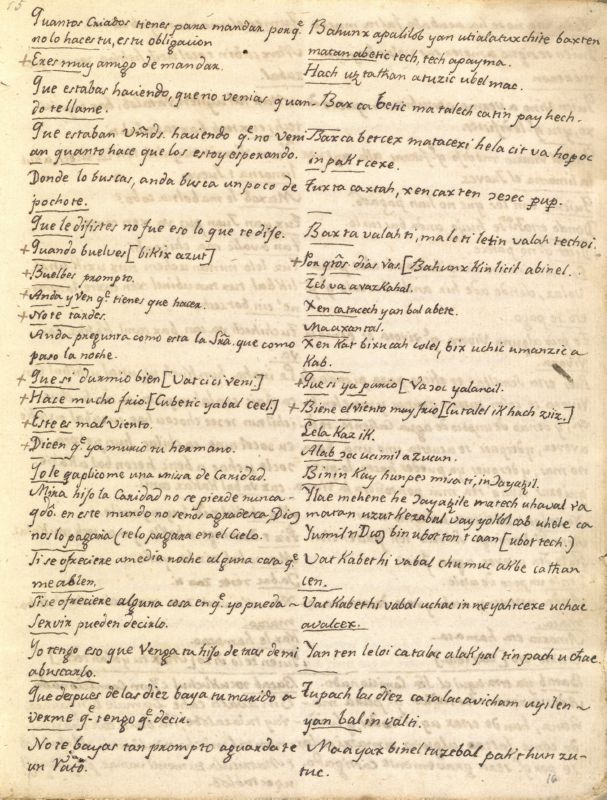 15
Quantos Criados tienes para mandar porq.e
no lo haces tu, es tu obligacion
Bahunx apalilob yan utialatuxchite baxten
matan abetic tech, tech apayma.
+ Eres muy amigo de mandar.
Hach uz tathan atuzic ubel mac.
Que estabas haciendo, que no venias quan-
do te llame.
Bax ca betic ma talech catin pay hech.
Que estaban Vmds. haciendo q.e no veni
an quanto hace que los estoy esperando.
Bax ca betcex matacexi hela cit va hopoc
in paktcexe.
Donde lo buscas, anda busca un poco de
pochote.
tuxta caxtah, xen caxten ɔeɔec pup.
Que le dijistes no fue eso lo que te dije.
Baxta valah ti, ma leti letin valah techoi
+ Quando buelves [bikix azut]
+ Por q̃tos dias vas. [Bahunx kin licit abinel.
+ Buelbes prompto.
Zeb va avaz kahal.
+ Anda y ven q.e tienes que hacer.
Xen catacech yan bal abete.
+ No te tardes.
Ma a xantal.
Anda pregunta como esta la Sra. que como
paso la noche.
Xen kat bix ucah colel, bix uchic umanzic a
kab.
+ Que si durmio bien [Uat ci ci veni.]
+ Que si ya pario [Va ɔoc yalancil.
+ Hace mucho frio. [Cubetic yabal ceel]
+ Biene el viento muy frio [Cu talel ik hach zsiz.]
+ Este es mal viento.
Lela kaz ik.
+ Dicen q.e ya murio tu hermano.
Alab ɔoc ucimil a zucun.
Yo le aplicome una misa de Caridad.
Binin kay hunpes misa ti, in ɔayatzil.
Mira hijo la Caridad no se pierde nunca-
qdo. en este mundo no senos agradesca, Dios
nos lo pagaria (te lo pagara en el Cielo.
Ylae mehene he ɔayatzile matech uhaual va
matan uzut kezabal vay yokol cab uhele ca
Yumil ti Dios bin ubot ton t caan [ubot tech.)
Si se ofreciere a media noche alguna cosa q.e
me ablen.
Vat kabet hi vabal chumuc akbe cathan
cen.
Si se ofreciere alguna cosa en q.e yo pueda ~
servir pueden decirlo.
Vat kabet hi vabal uchac in meyahtcexe uchac
avalcex.
Yo tengo eso que Venga tu hijo detras de mi
abuscarlo.
Yan ten leloi ca talac alak pal tin pach uchae.
Que despues de las diez baya tu marido a
verme q.e tengo q.e decir.
tu pach las diez ca talac avicham uyilen ~
yan bal in valti.
No te bayas tan prompto aguarda te
un Vato.
Ma a yax binel tuzebal pakthun zu-
tuc.
16